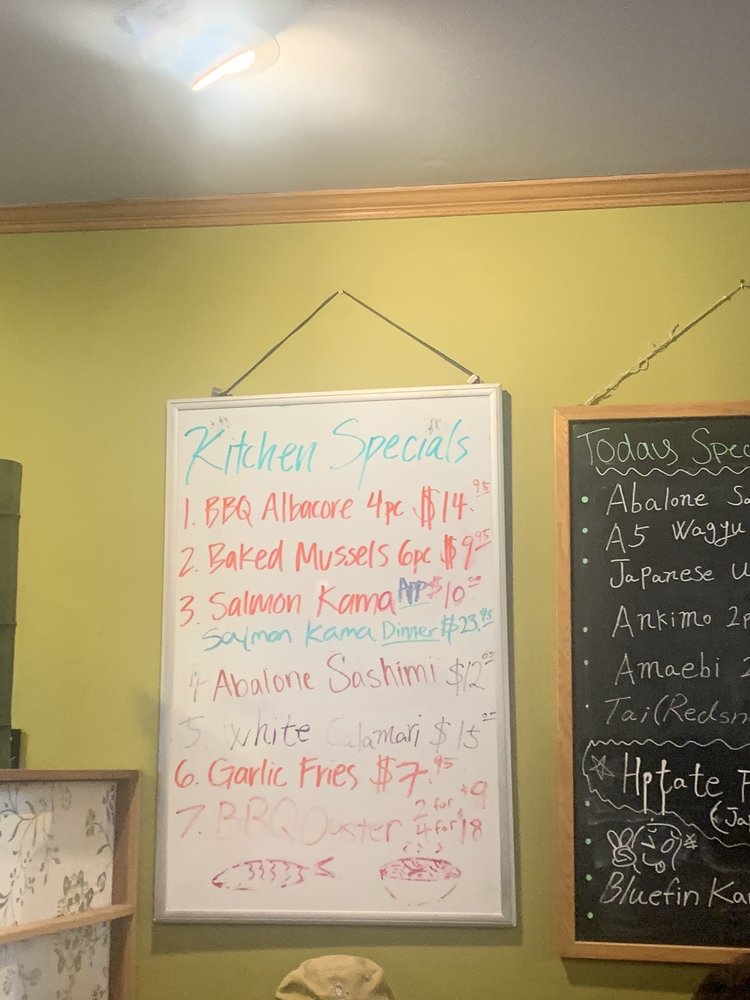 Kitchen Specials
1. BBQ Albacore 4pc $14.95
2. Baked Mussels 6pc $9.95
3. Salmon Kama App $10.50
Salmon Kama Dinner $23.95
4 Abalone Sashimi $12
5. White Calamari $15
6. Garlic Fries $7.95
7. BBQ Oyster 2 for $9
4 for $18
Todays Spec
Abalone Sa
A5 Wagyu
Japanese U
Ankimo 2p
Amaebi 2
Tai (Redsn
Hotate
(Ja
Bluefin Ka